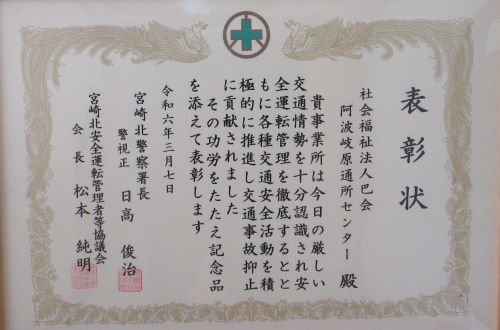 表彰状
社会福祉法人巴会
阿波岐原通所センター 殿
貴事業所は今日の厳しい
交通情勢を十分認識され安
全運転管理を徹底するとと
もに各種交通安全活動を積
極的に推進し交通事故抑止
に貢献されました
その功労をたたえ記念品
を添えて表彰します
令和六年三月七日
宮崎北警察署長
警視正 日高 俊治
宮崎北安全運転管理者等協議会
会長 松本 純明